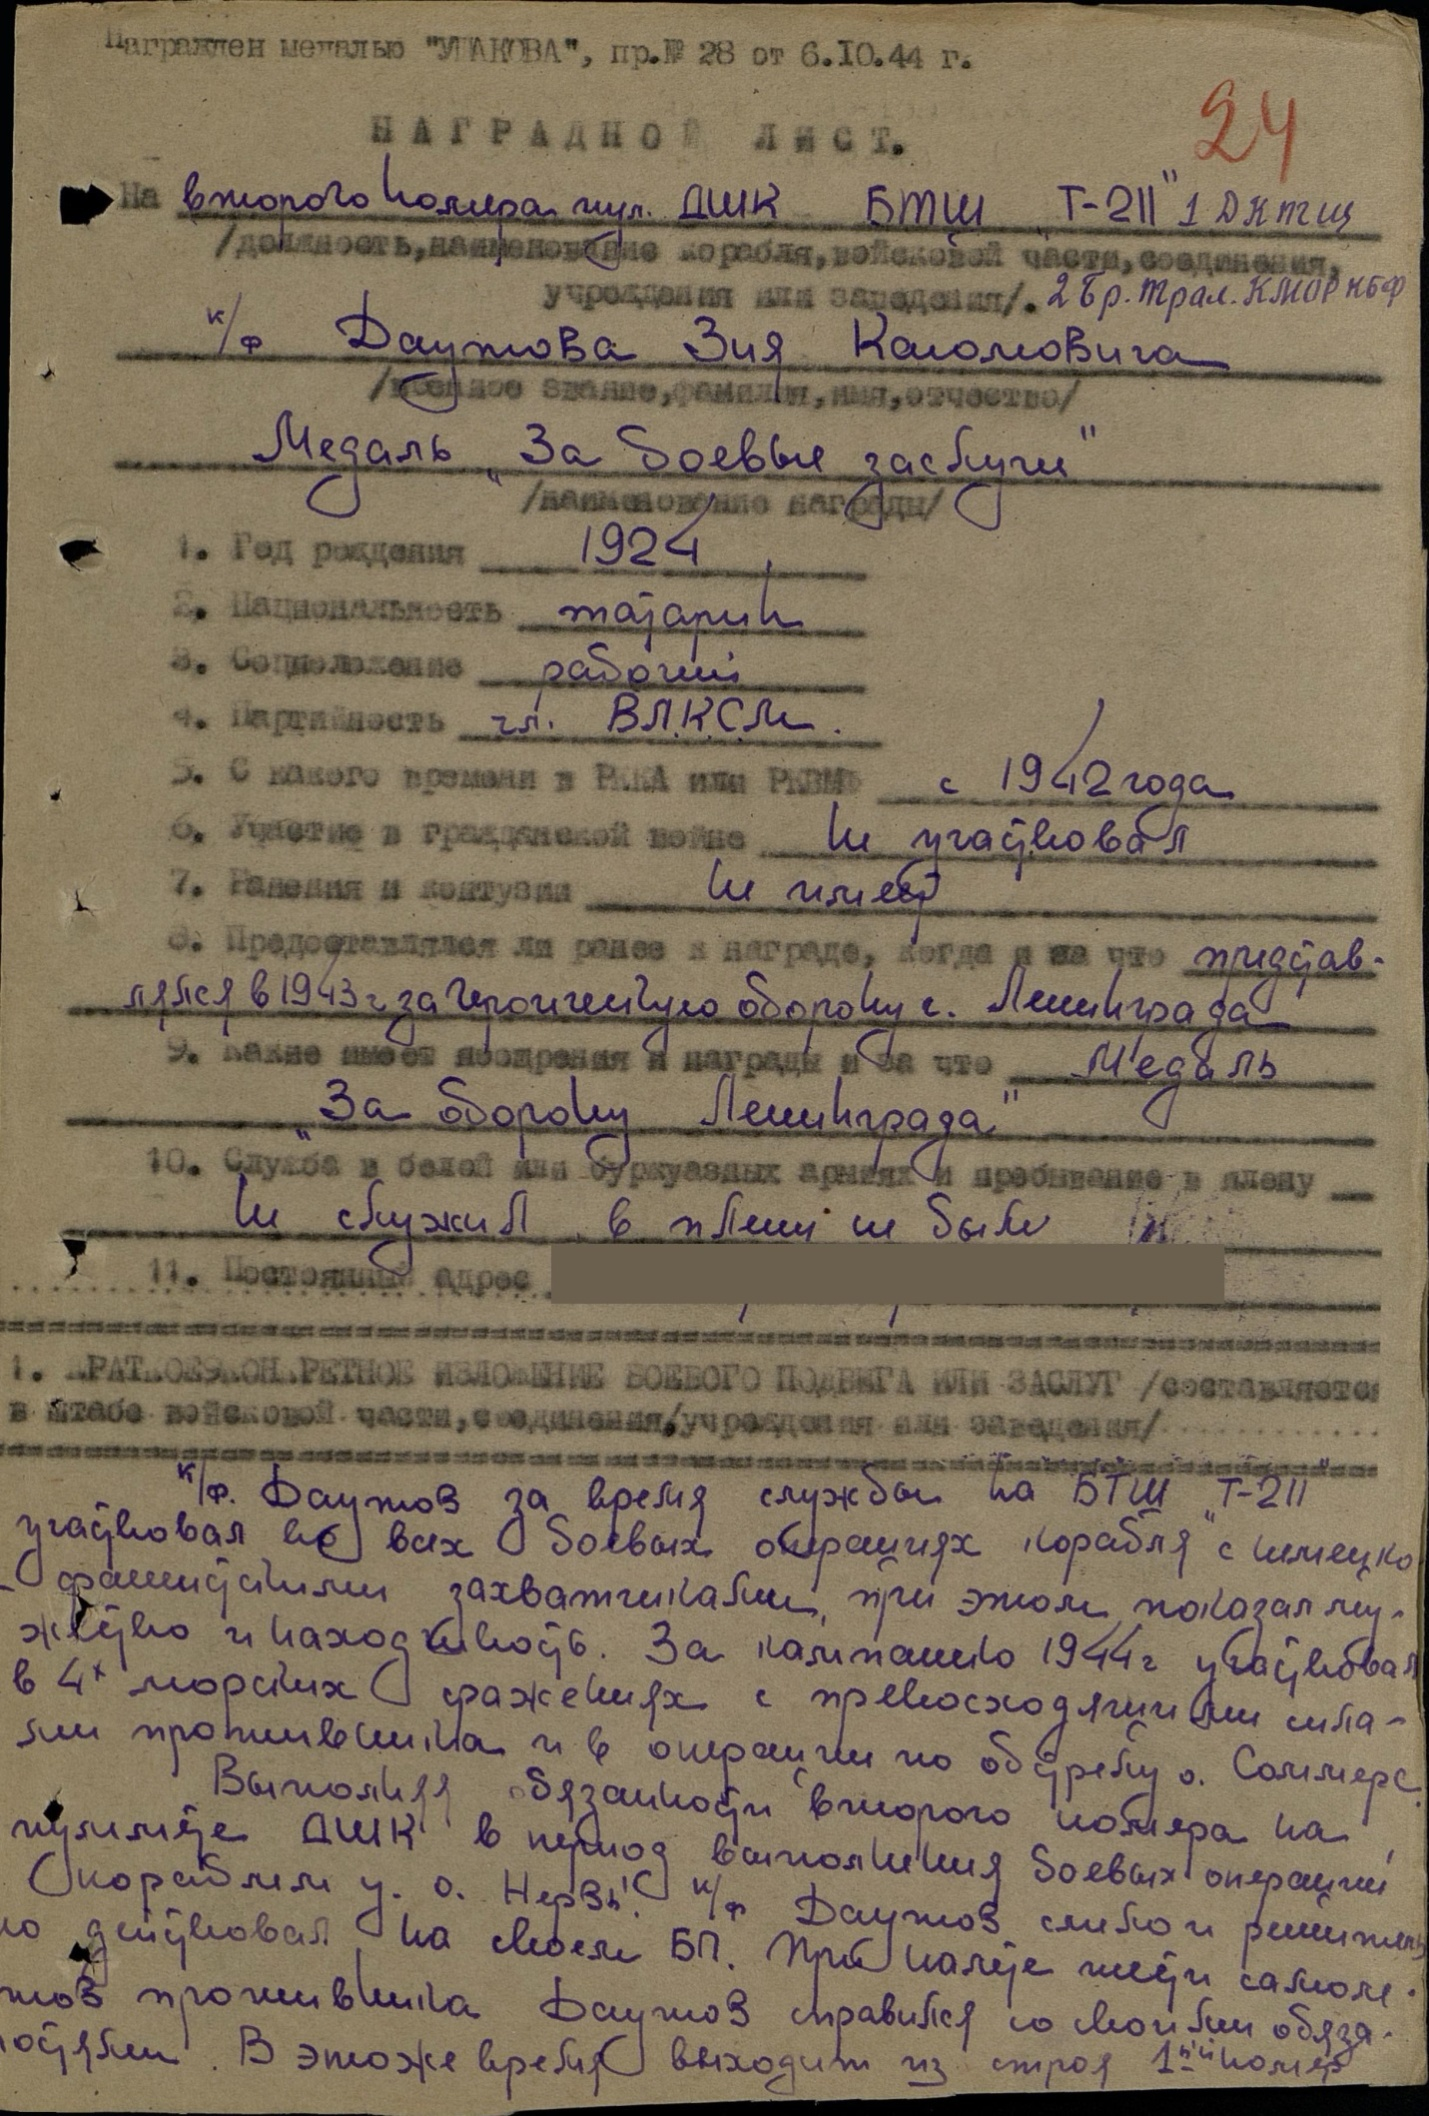 Награжден медалью "УШАКОВА", пр.№ 28 от 6.10.44 г.
24
НАГРАДНОЙ ЛИСТ.
На второго номера пул. ДШК БТЩ „Т-211" 1 ДКТЩ
/должность, наименование корабля, войсковой части, соединения,
учреждения или заведения/. 2 бр. трал. КМОР КБФ
к/ф Даутова Зия
/военное звание, фамилия, имя, отчество/
Медаль „За боевые заслуги"
/наименование награды/
1. Год рождения 1924
2. Национальность татарин
3. Соцположение рабочий
4. Партийность чл. ВЛКСМ.
5. С какого времени в РККА или РКВМФ с 1942 года
6. Участие в гражданской войне не участвовал
7. Ранения и контузии не имеет
8. Предоставлялся ли ранее к награде, когда и за что представ-
лялся в 1943 г за героическую оборону г. Ленинграда
9. Какие имеет поощрения и награды и за что Медаль
„За оборону Ленинграда"
10. Служба в белой или буржуазных армиях и пребывание в плену
не служил в плену не был
11. Постоянный адрес
1. КРАТКОЕ КОНКРЕТНОЕ ИЗЛОЖЕНИЕ БОЕВОГО ПОДВИГА ИЛИ ЗАСЛУГ /составляется
в штабе войсковой части, соединения, учреждения или заведения/
к/ф. Даутов за время службы на БТЩ „Т-211"
участвовал во всех боевых операциях корабля с немецко
- фашистскими захватчиками, при этом показал му-
жество и находчивость. За кампанию 1944 г участвовал
в 4х морских сражениях с превосходящими сила-
ми противника и в операции по обстрелу о. Соммерс.
Выполняя обязанности второго номера на
пулемете ДШК в период выполнения боевых операций
кораблем у. о. Нерва. к/ф Даутов смело и решитель
но действовал на своем БП. При налете шести самоле-
тов противника Даутов справился со своими обяза-
ностями. В этоже время выходит из строя 1ый номер